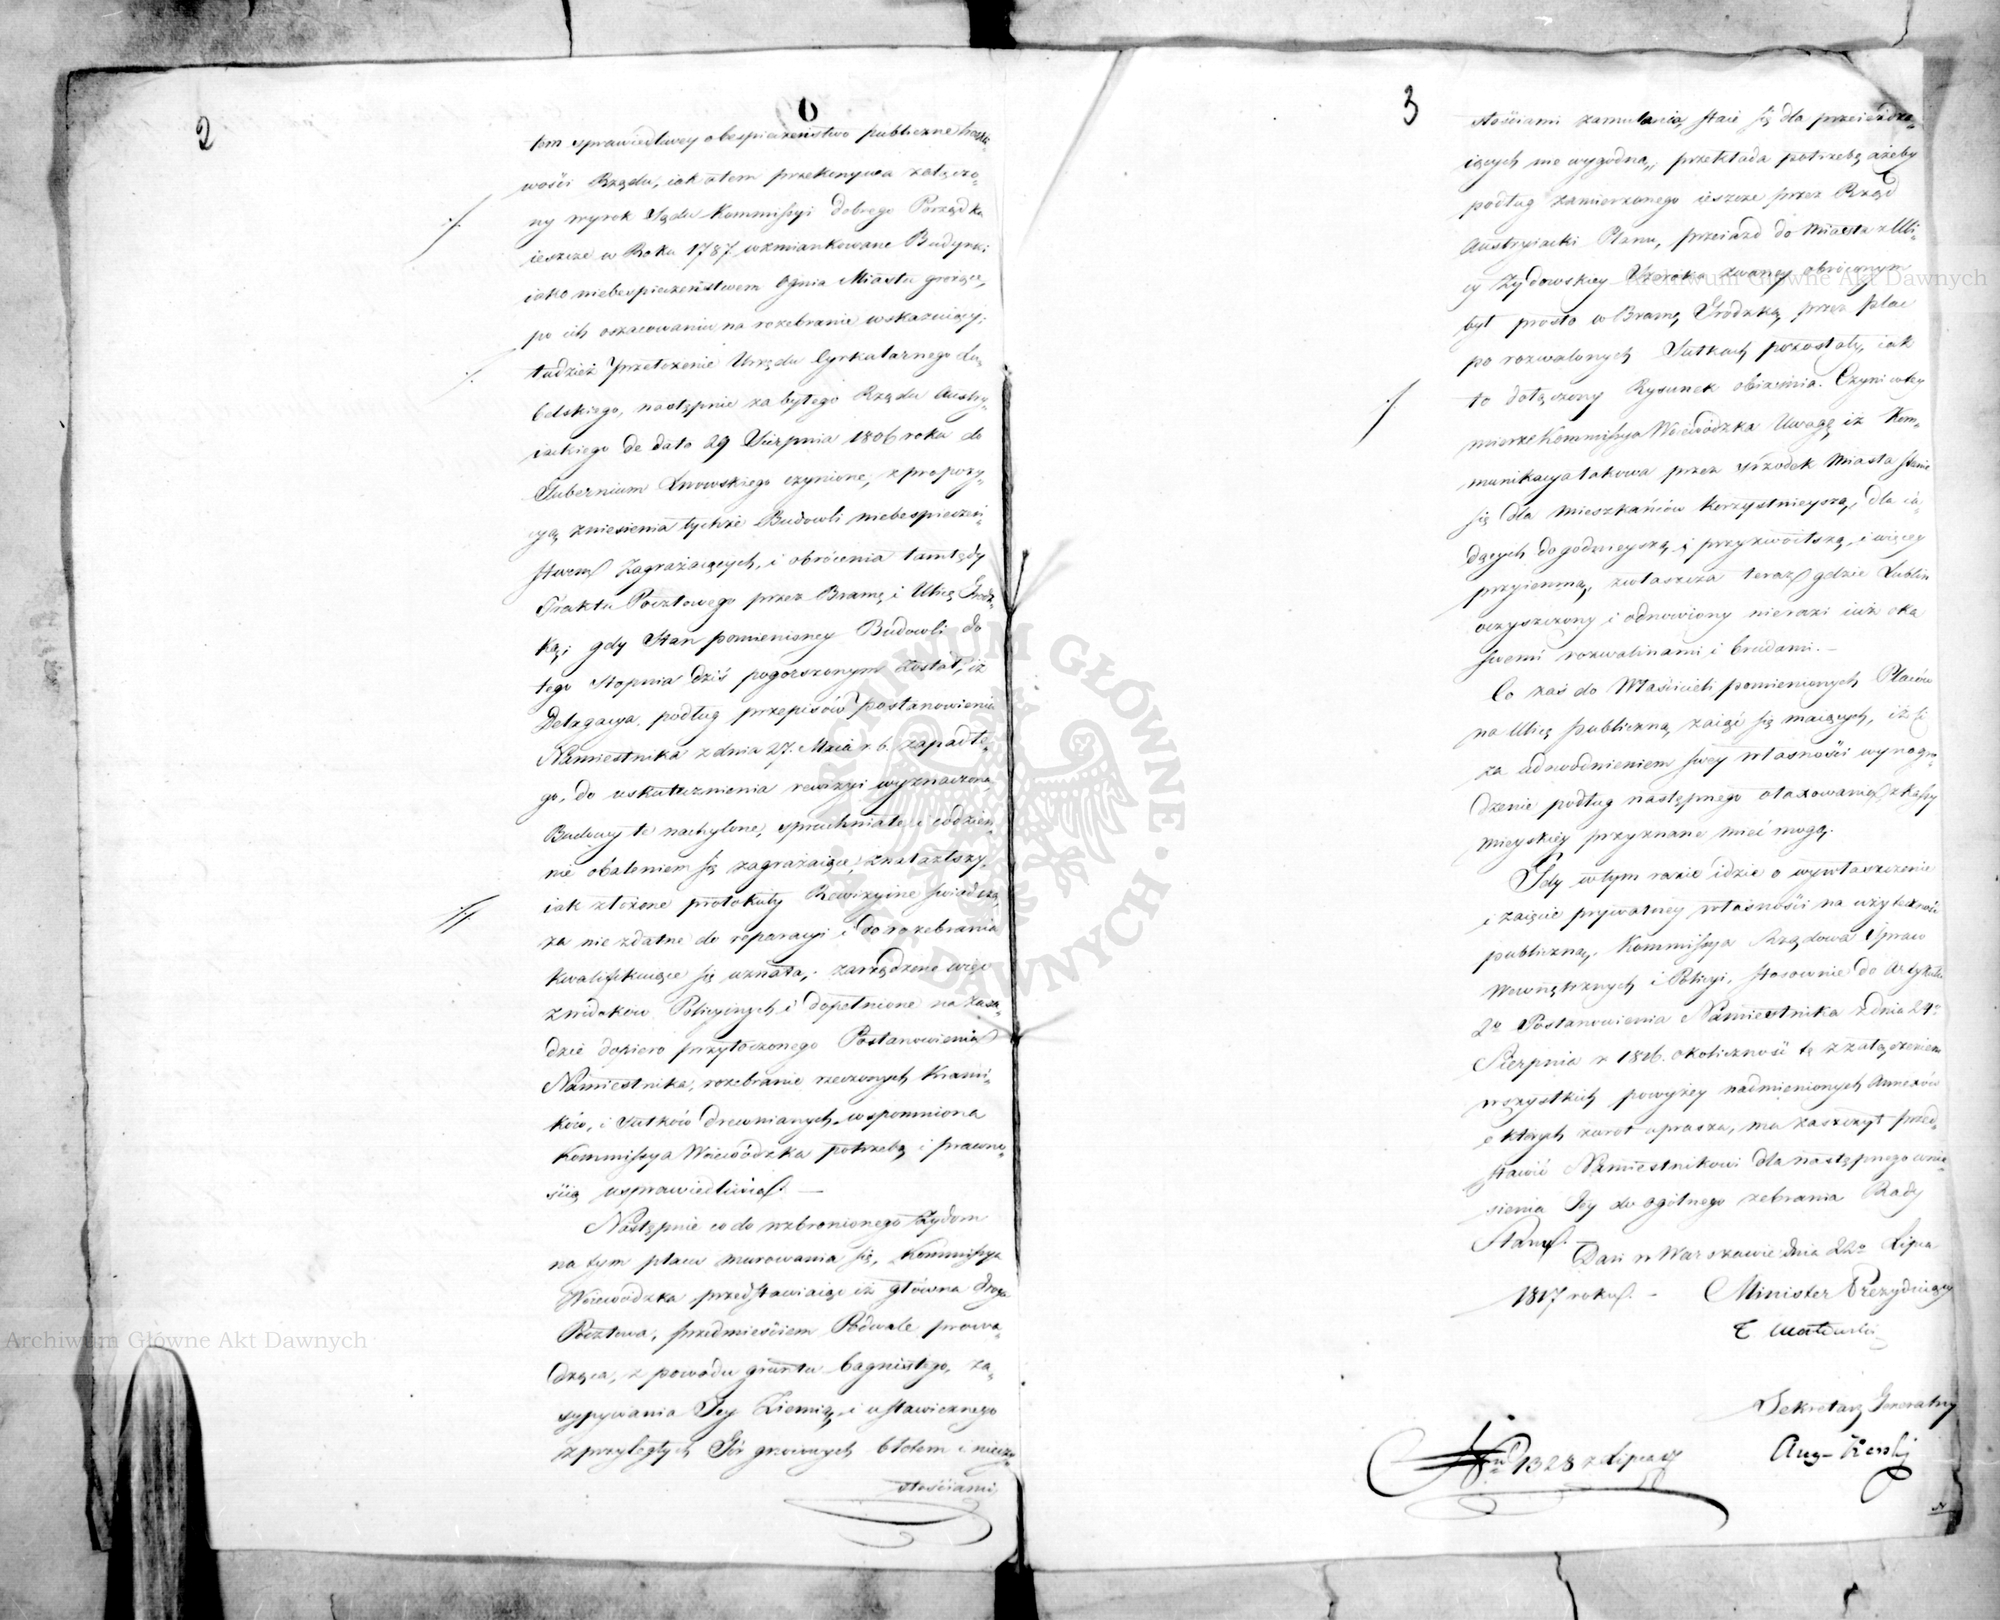 2
0
tem sprawiedliwey o bespieczeństwo publiczne troskli-
wości Rządu, iak o tem przekonywa załączo-
ny wyrok Sądu Kommissyi dobrego Porządku
ieszcze w Roku 1787. wzmiankowane Budynki
iako niebespieczeństwem Ognia Miastu grożące,
po ich oszacowaniu na rozebranie wskazuiący;
tudzież Przełożenie Urzędu Cyrkularnego Lu-
belskiego, następnie za bytego Rządu Austry-
iackiego de dato 29 Sierpnia 1806 roku do
Gubernium Lwowskiego czynione, z propozy-
cyą zniesienia tychże Budowli niebespieczeń-
stwem Zagrażaiących, i obrócenia tamtędy
Traktu Pocztowego przez Bramę i Ulicę Grodz-
ką; gdy Stan pomienioney Budowli do
tego stopnia dziś pogorszonym został, iż
Delegacya podług przepisów postanowienia
Namiestnika z dnia 27. Maia r. b. zapadłe-
go, do uskutecznienia rewizyi wyznaczona,
Budowy te nachylone, spruchniałe, i codzien-
nie obaleniem się zagrażaiące, znalazłszy,
iak złożone protokuły Rewizyine świadczą,
za nie zdatne do reparacyi i do rozebrania
kwalifikuiące się uznała; zarządzone więc
z widoków Policyinych i dopełnione na zasa-
dzie dopiero przytoczonego Postanowienia
Namiestnika, rozebranie rzeczonych Krami-
ków, i Jatków drewnianych, wspomniona
Kommissya Woiewódzka potrzebą i prawno-
ścią usprawiedliwia. —
Następnie co do wzbronionego Żydom
na tym placu murowania się, Kommissya
Woiewódzka przedstawiaiąc iż główna droga
Pocztowa, przedmieściem Podwale prowa-
dząca, z powodu gruntu bagnistego, za-
sypywania Jey Ziemią, i ustawicznego
z przyległych Gór gnoiowych błotem i nieczy-
stościami
3
stościami zamulania, staie się dla przeieżdża-
iących nie wygodną, przekłada potrzebę ażeby
podług zamierzonego ieszcze przez Rząd
Austryiacki Planu, przeiazd do Miasta z Uli-
cy Żydowskiey Szeroka zwaney obróconym
był prosto w Bramę Grodzką, przez plac
po rozwalonych Jatkach pozostały, iak
to dołączony Rysunek obiaśnia. Czyni w tey
mierze Kommissya Woiewódzka Uwagę iż Kom-
munikacya takowa przez środek Miasta stanie
się dla mieszkańców korzystnieyszą, dla ia-
dących dogodnieyszą i przyzwoitszą, i więcey
przyiemną, zwłaszcza teraz gdzie Lublin
oczyszczony i odnowiony nierazi iuż oka
swemi rozwalinami i brudami. —
Co zaś do Właścicieli pomienionych Placów
na Ulicę publiczną zaiąć się maiących, iż ci
za udowodnieniem swey własności wynagro-
dzenie podług następnego otaxowania z kassy
mieyskiey przyznane mieć mogą.
Gdy w tym razie idzie o wywłaszczenie
i zaięcie prywatney własności na użyteczność
publiczną, Kommissya Rządowa Spraw
Wewnętrznych i Policyi, stosownie do Artykułu
2º Postanowienia Namiestnika z dnia 24º
Sierpnia r 1816. okoliczność tę z załączeniem
wszystkich powyżey nadmienionych Annexów
o których zwrot uprasza, ma zaszczyt przed-
stawić Namiestnikowi dla następnego wnie-
sienia Jey do ogólnego zebrania Rady
Stanu.
Dan w Warszawie dnia 22º Lipca
1817 roku. - Minister Prezyduiący
Sekretarz Generalny
1328 z Lipca
Archiwum Główne Akt Dawnych
Archiwum Główne Akt Dawnych
ARCHIWUM GŁÓWNE · AKT DAWNYCH ·